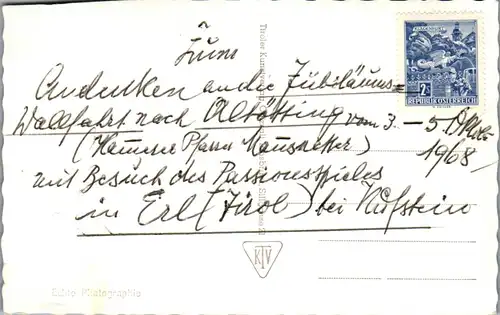 Zum
Andenken an die Jubiläums=
Wallfahrt nach Altötting vom 3. – 5. Okt.
(Hausner Pfarrer) 1968
mit Besuch des Passionsspieles
in Erl (Tirol) bei Kufstein
2 S
REPUBLIK ÖSTERREICH
Tiroler
KTV
Echte Photographie